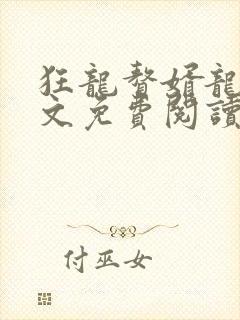 狂龍贅婿龍
文免費閱讀
付巫女